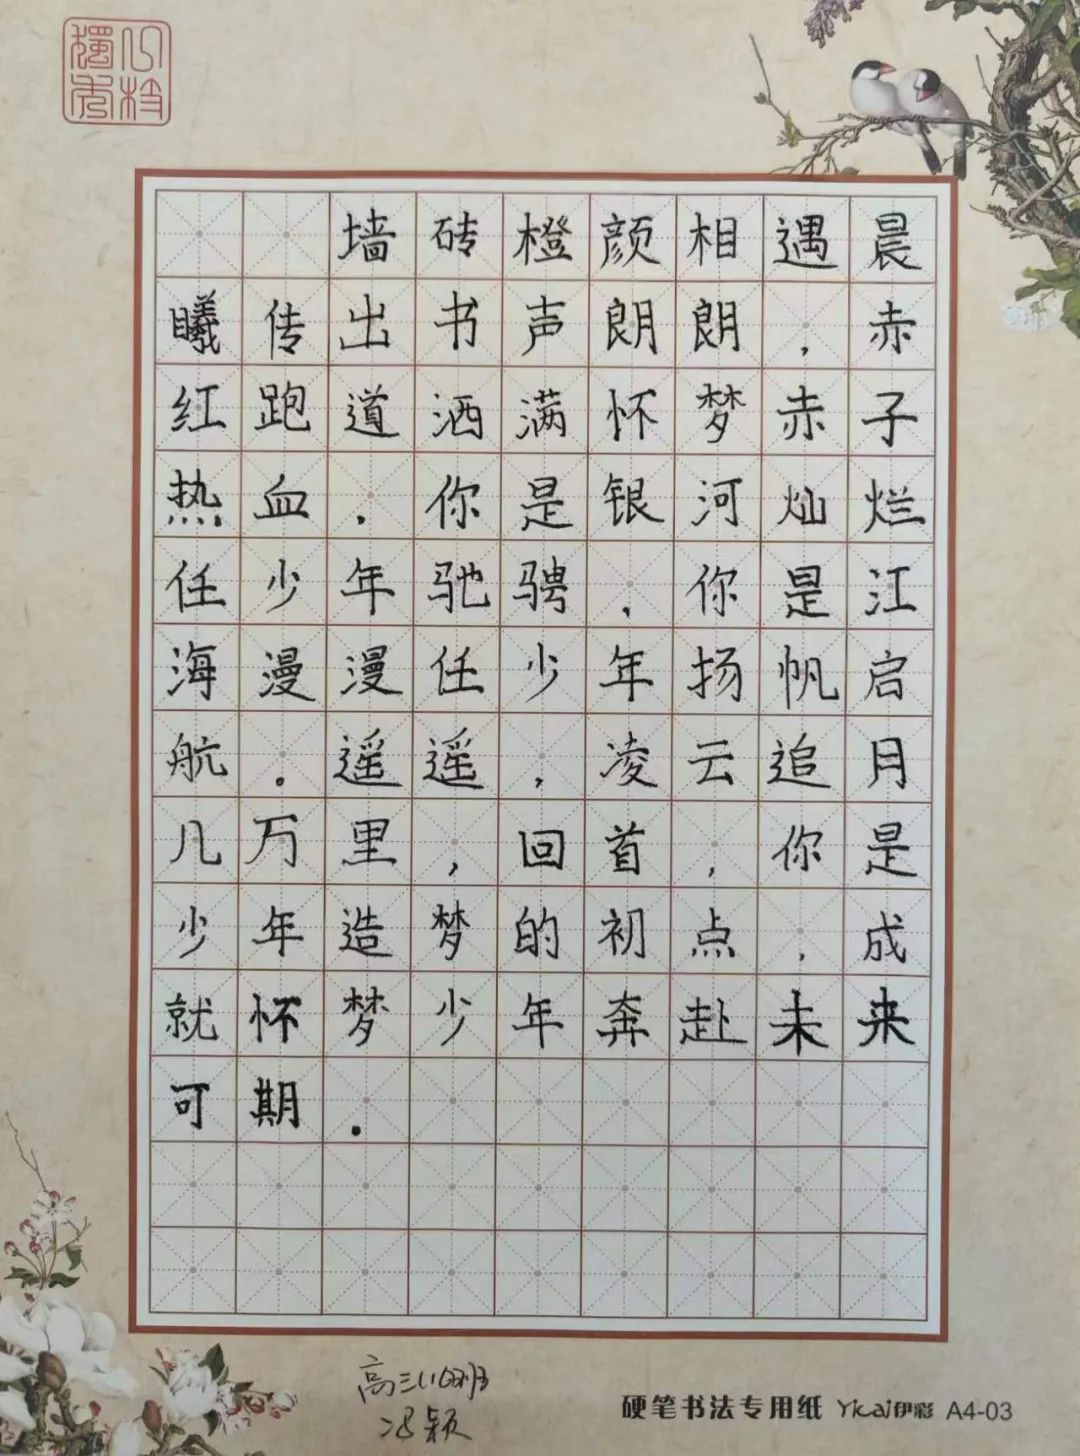 墙砖橙颜相遇晨
曦传出书声朗朗，赤
红跑道洒满怀梦赤子
热血.你是银河灿烂
任少年驰骋，你是江
海漫漫任少年扬帆启
航。遥遥，凌云追月
几万里，回首，你是
少年造梦的初点，成
就怀梦少年奔赴未来
可期.
高三(10)班
冯颖
硬笔书法专用纸 Yicai伊彩 A4-03